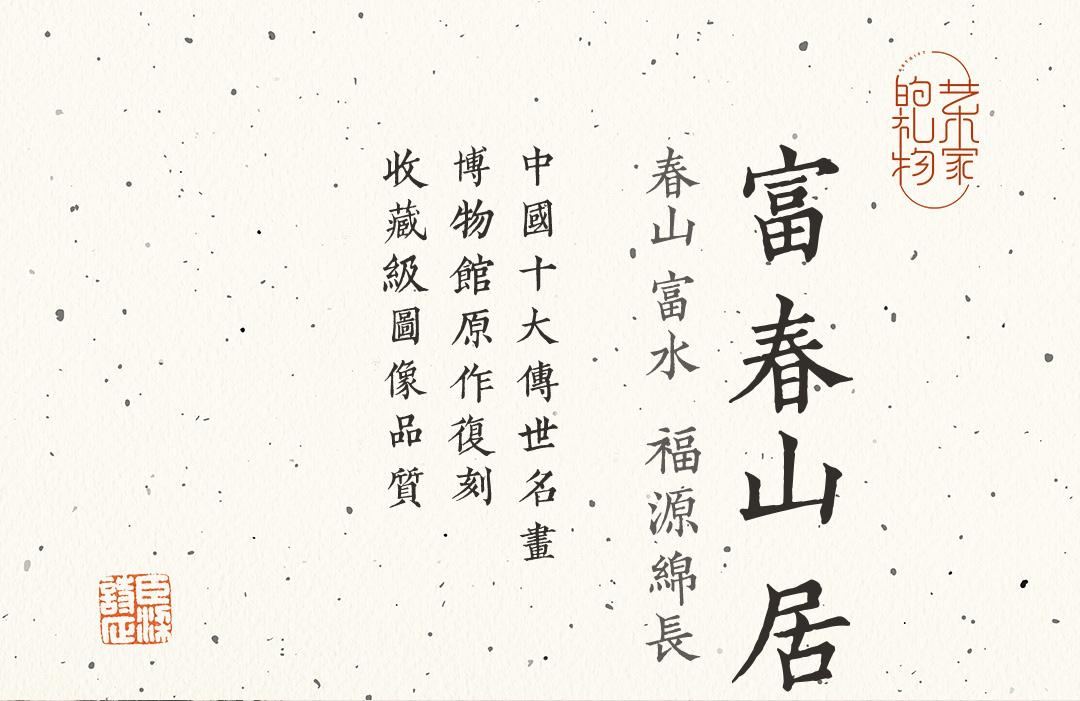 艺术家
的礼物
富春山居
春山富水 福源綿長
中國十大傳世名畫
博物館原作復刻
收藏級圖像品質